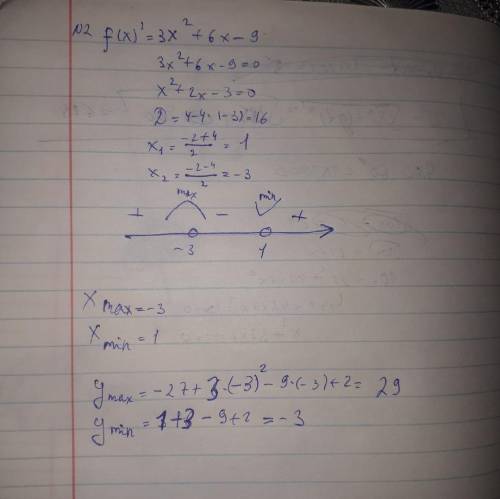 №2 f(x)' = 3x² + 6x - 9
3x² + 6x - 9 = 0
x² + 2x - 3 = 0
D = 4 - 4 · (-3) = 16
x₁ = (-2+4)/2 = 1
x₂ = (-2-4)/2 = -3
max min
+ - +
-3 1
x max = -3
x min = 1
y max = -27 + 3·(-3)² - 9·(-3) + 2 = 29
y min = 1 + 3 - 9 + 2 = -3